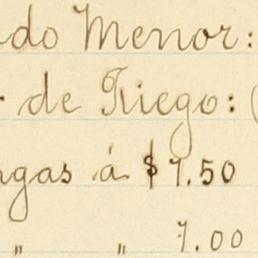 do Menor:
. de Riego: (
gas á $7.50
" " 7.00